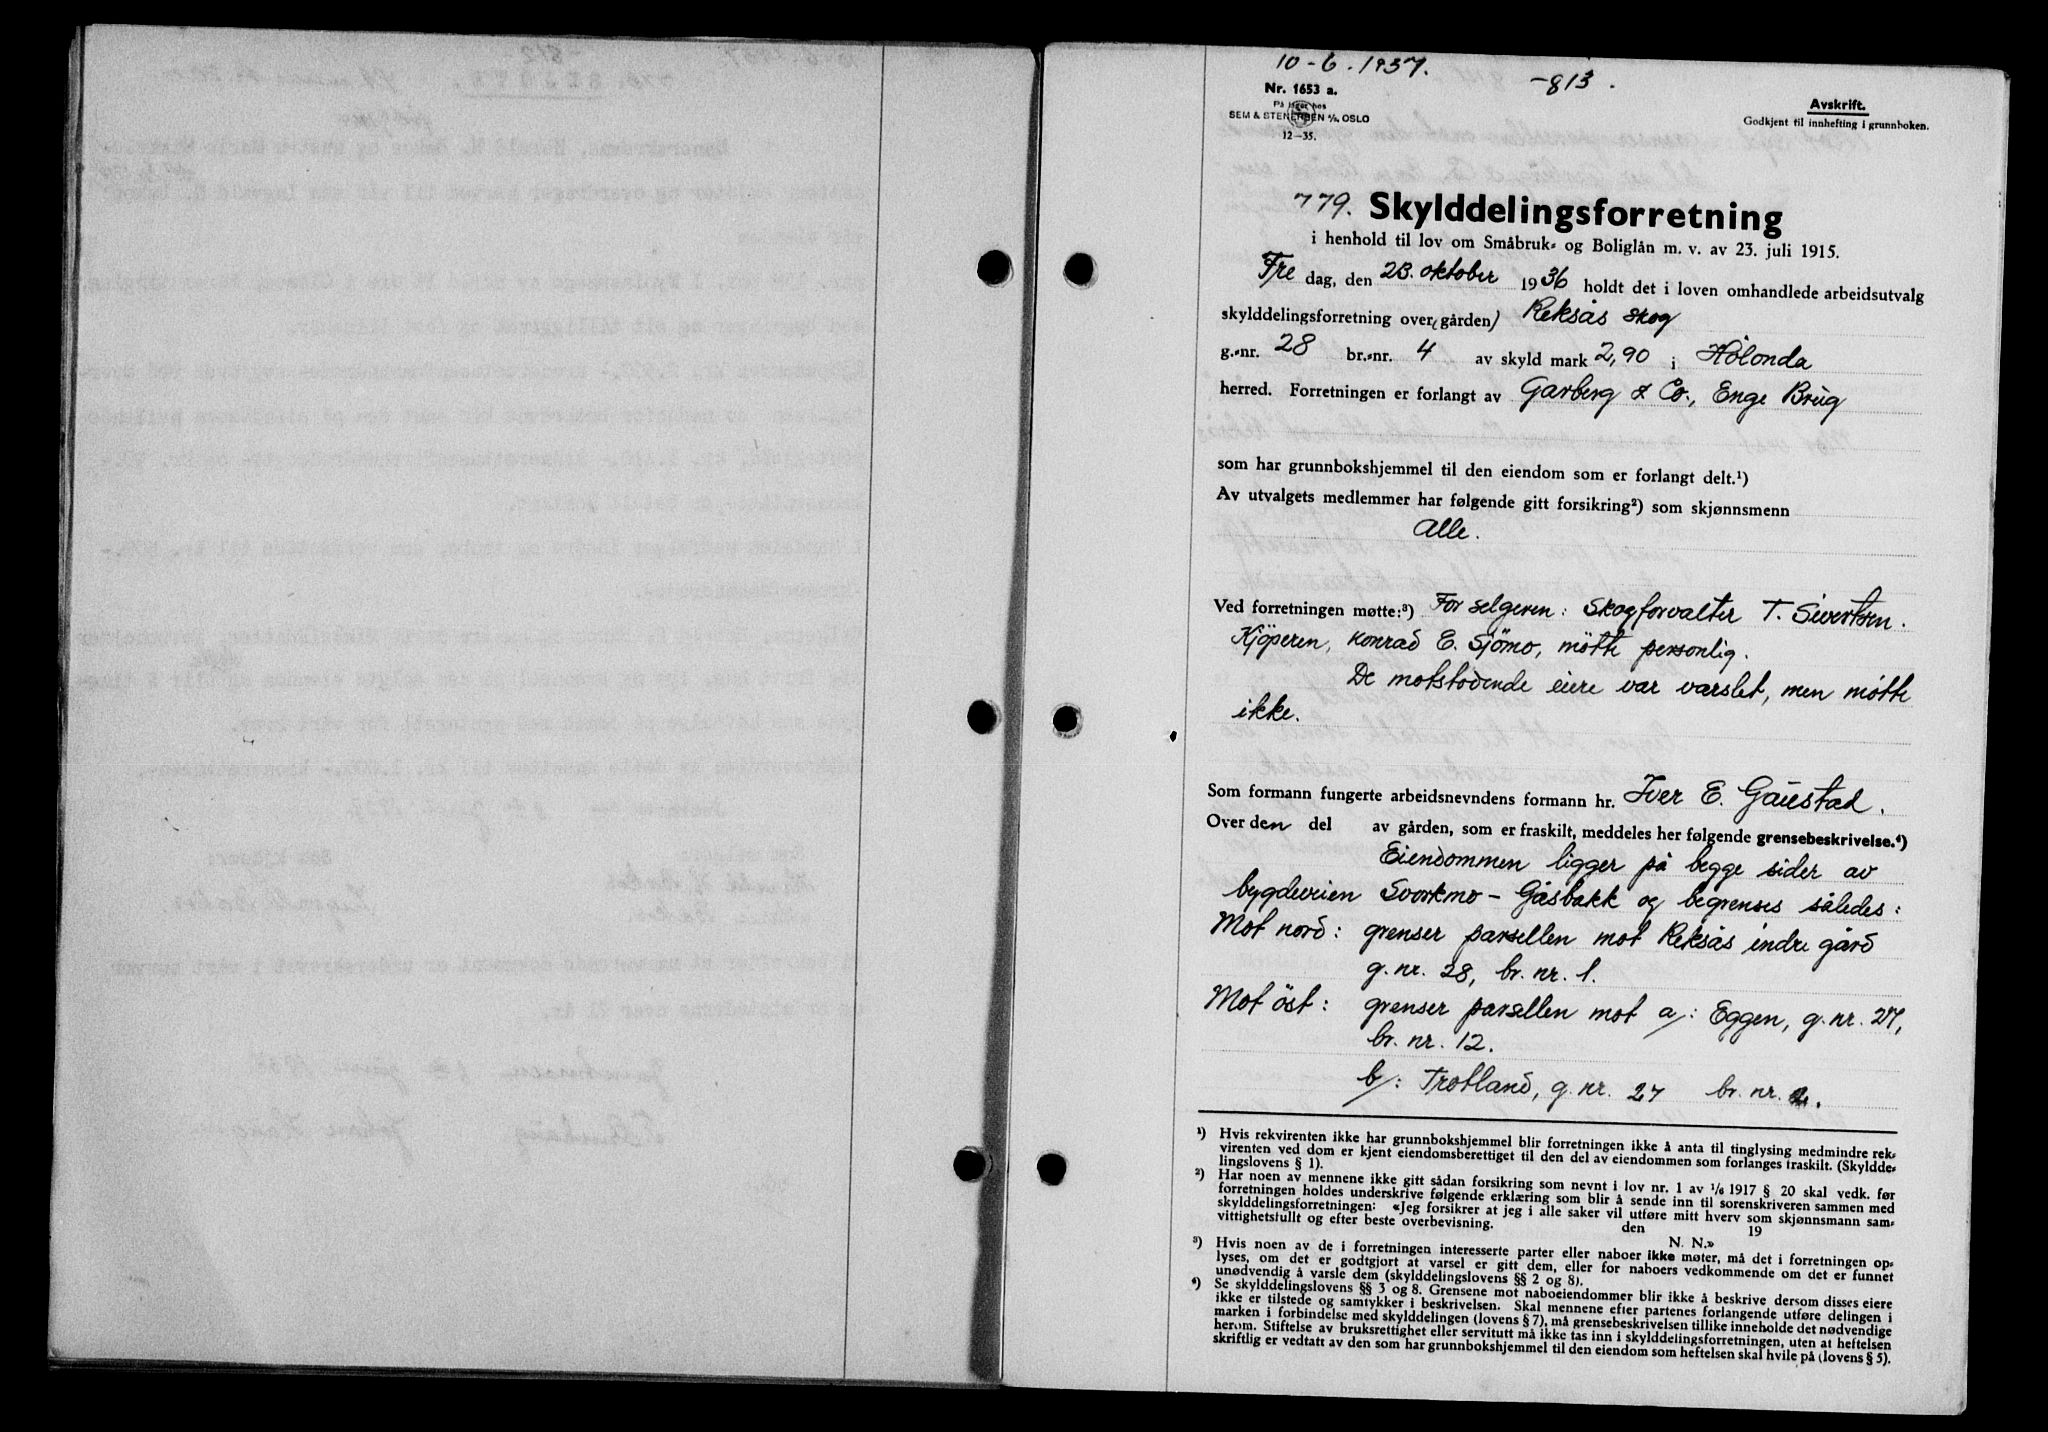 10-6-1937.
-813.
Nr. 1653 a.
På lager hos
SEM & STENERSEN A/S, OSLO
12-35.
Avskrift.
Godkjent til innhefting i grunnboken.
779. Skylddelingsforretning
i henhold til lov om Småbruk- og Boliglån m. v. av 23. juli 1915.
Fre dag, den 23. oktober 1936 holdt det i loven omhandlede arbeidsutvalg
skylddelingsforretning over (gården) Reksås skog
g.-nr. 28 br.-nr. 4 av skyld mark 2,90 i Hölonda
herred. Forretningen er forlangt av Garberg & Co., Enge Brug
som har grunnbokshjemmel til den eiendom som er forlangt delt.¹)
Av utvalgets medlemmer har følgende gitt forsikring²) som skjønnsmenn
Alle.
Ved forretningen møtte:³) For selgeren: Skogforvalter T. Sivertsen.
Kjöperen, Konrad E. Sjömo, mötte personlig.
De motstödende eiere var varslet, men mötte
ikke.
Som formann fungerte arbeidsnevndens formann hr. Iver E. Gaustad.
Over den del av gården, som er fraskilt, meddeles her følgende grensebeskrivelse.⁴)
Eiendommen ligger på begge sider av
bygdeveien Svorkmo - Gåsbakk og begrenses således:
Mot nord: grenser parsellen mot Reksås indre gård
g. nr. 28, br. nr. 1.
Mot öst: grenser parsellen mot a/: Eggen, g. nr. 27,
br. nr. 12.
b/: Trotland, g. nr. 27 br. nr. 2.
¹) Hvis rekvirenten ikke har grunnbokshjemmel blir forretningen ikke å anta til tinglysing medmindre rek-
virenten ved dom er kjent eiendomsberettiget til den del av eiendommen som forlanges fraskilt. (Skyldde-
lingslovens § 1).
²) Har noen av mennene ikke gitt sådan forsikring som nevnt i lov nr. 1 av 1/6 1917 § 20 skal vedk. før
forretningen holdes underskrive følgende erklæring som blir å sende inn til sorenskriveren sammen med
skylddelingsforretningen: «Jeg forsikrer at jeg i alle saker vil utføre mitt hverv som skjønnsmann sam-
vittighetsfullt og efter beste overbevisning. den 19
N. N.»
³) Hvis noen av de i forretningen interesserte parter eller naboer ikke møter, må det i forretningen op-
lyses, om det er godtgjort at varsel er gitt dem, eller for naboers vedkommende om det er funnet
unødvendig å varsle dem (skylddelingslovens §§ 2 og 8).
⁴) Se skylddelingslovens §§ 3 og 8. Grensene mot naboeiendommer blir ikke å beskrive dersom disses eiere
ikke er tilstede og samtykker i beskrivelsen. Skal mennene efter partenes forlangende utføre delingen i
marken i forbindelse med skylddelingen (lovens § 7), må grensebeskrivelsen tillike inneholde det nødvendige
herom. Stiftelse av bruksrettighet eller servitutt må ikke tas inn i skylddelingsforretningen, uten at heftelsen
skriftlig er vedtatt av den som har grunnbokshjemmel til den eiendom som heftelsen skal hvile på (lovens § 5).